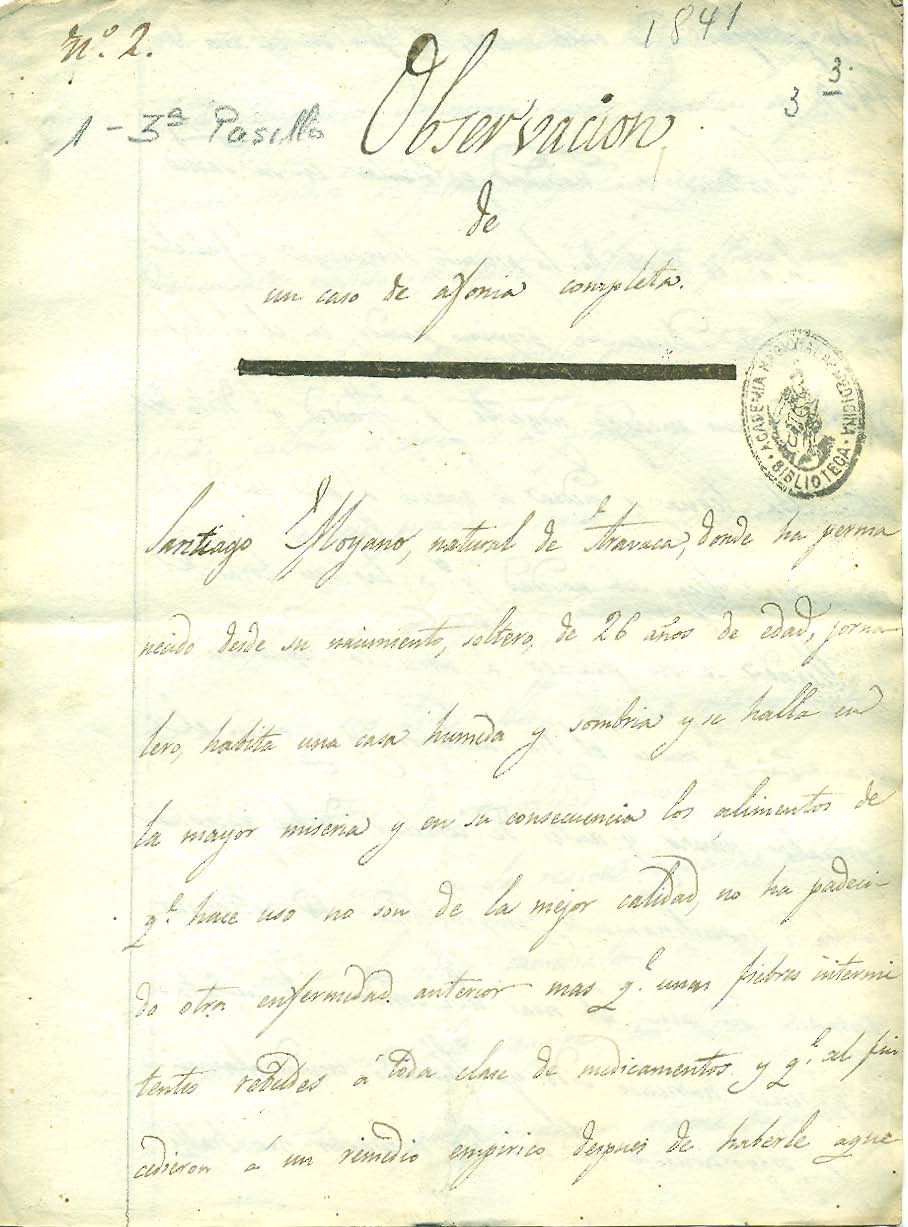 1841
nº. 2.
3 3.
1 - 3ª Pasillo
Observacion
de
un caso de afonia completa.
ACADEMIA NACIONAL DE MEDICINA · BIBLIOTECA ·
Santiago Moyano, natural de Aravaca, donde ha perma
necido desde su nacimiento, soltero, de 26 años de edad, jorna
lero, habita una casa humeda y sombria y se halla en
la mayor miseria y en su consecuencia los alimentos de
qe. hace uso no son de la mejor calidad, no ha padeci-
do otra enfermedad anterior mas qe. unas fiebres intermi
tentes rebeldes á toda clase de medicamentos y qe. al fin
cedieron á un remedio empirico despues de haberle aque